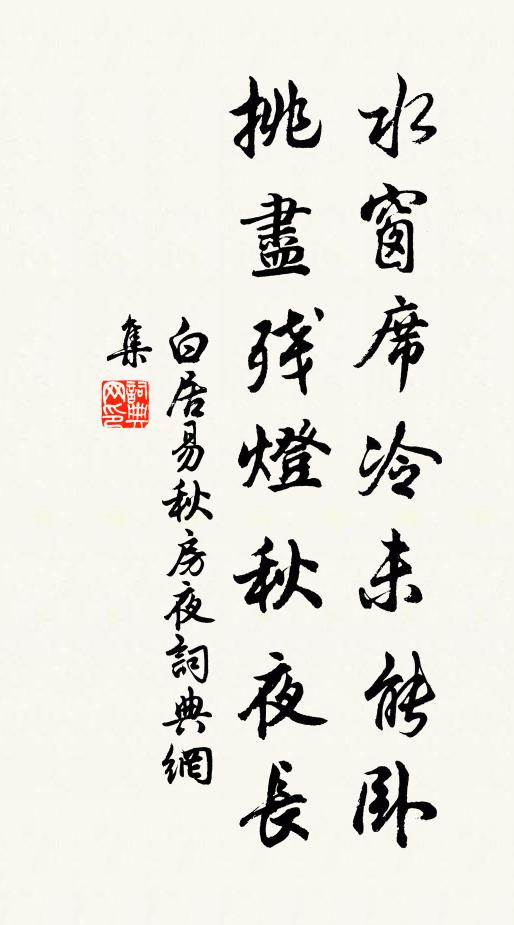 水窗席冷未能卧
挑盡残燈秋夜長
白居易秋房夜詞典網
集
詞典网印